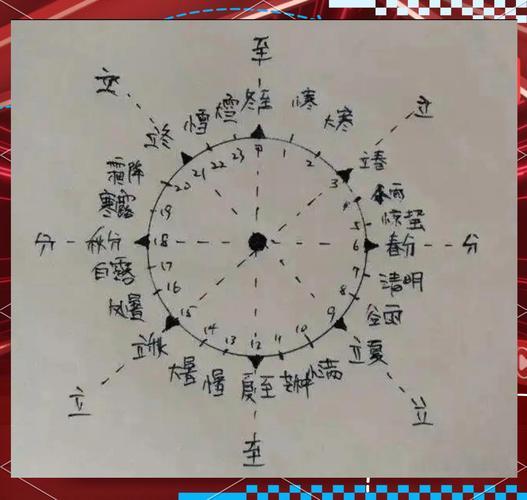 至
立
立
大雪
冬至
小寒
小雪
大寒
立冬
立春
霜降
惊蛰
寒露
分
秋分
春分
分
白露
清明
谷雨
立秋
立夏
大暑
小暑
夏至
芒种
小满
立
立
至
1
2
3
4
5
6
7
8
9
10
11
12
13
14
15
16
17
18
19
20
21
22
23